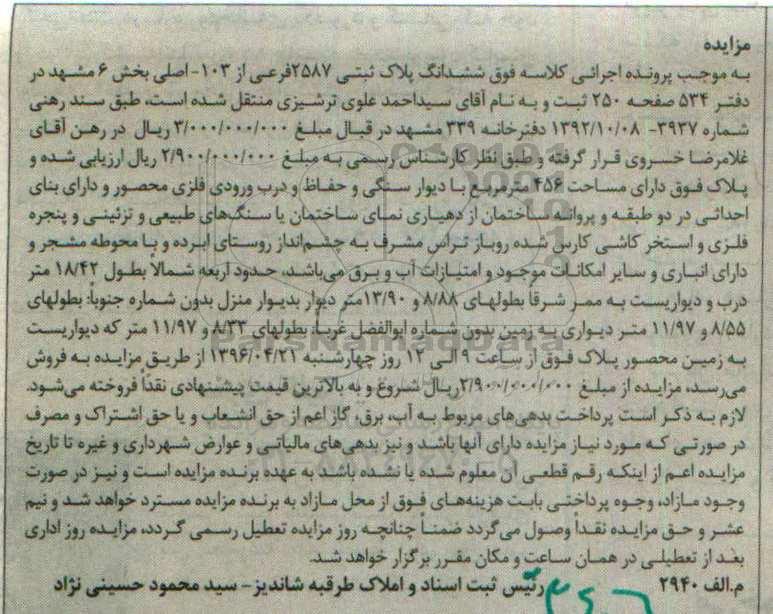 مزایده
به موجب پرونده اجرائی کلاسه فوق ششدانگ پلاک ثبتی ۲۵۸۷فرعی از ۱۰۳- اصلی بخش ۶ مشهد در
دفتر ۵۳۴ صفحه ۲۵۰ ثبت و به نام آقای سیداحمد علوی ترشیزی منتقل شده است، طبق سند رهنی
شماره ۳۹۳۷- ۱۳۹۲/۱۰/۰۸ دفترخانه ۳۳۹ مشهد در قبال مبلغ ۳/۰۰۰/۰۰۰/۰۰۰ ریال در رهن آقای
غلامرضا خسروی قرار گرفته و طبق نظر کارشناس رسمی به مبلغ ۲/۹۰۰/۰۰۰/۰۰۰ ریال ارزیابی شده و
پلاک فوق دارای مساحت ۴۵۶ مترمربع با دیوار سنگی و حفاظ و درب ورودی فلزی محصور و دارای بنای
احداثی در دو طبقه و پروانه ساختمان از دهیاری نمای ساختمان با سنگ‌های طبیعی و تزئینی و پنجره
فلزی و استخر کاشی کاری شده روباز تراس مشرف به چشم‌انداز روستای ابرده و با محوطه مشجر و
دارای انباری و سایر امکانات موجود و امتیازات آب و برق می‌باشد، حدود اربعه شمالاً بطول ۱۸/۴۲ متر
درب و دیواریست به ممر شرقاً بطولهای ۸/۸۸ و ۱۳/۹۰ متر دیوار بدیوار منزل بدون شماره جنوباً: بطولهای
۸/۵۵ و ۱۱/۹۷ متر دیواری به زمین بدون شماره ابوالفضل غرباً: بطولهای ۸/۳۳ و ۱۱/۹۷ متر که دیواریست
به زمین محصور پلاک فوق از ساعت ۹ الی ۱۲ روز چهارشنبه ۱۳۹۶/۰۴/۲۱ از طریق مزایده به فروش
می‌رسد، مزایده از مبلغ ۲/۹۰۰/۰۰۰/۰۰۰ریال شروع و به بالاترین قیمت پیشنهادی نقداً فروخته می‌شود.
لازم به ذکر است پرداخت بدهی‌های مربوط به آب، برق، گاز اعم از حق انشعاب و یا حق اشتراک و مصرف
در صورتی که مورد نیاز مزایده دارای آنها باشد و نیز بدهی‌های مالیاتی و عوارض شهرداری و غیره تا تاریخ
مزایده اعم از اینکه رقم قطعی آن معلوم شده یا نشده باشد به عهده برنده مزایده است و نیز در صورت
وجود مازاد، وجوه پرداختی بابت هزینه‌های فوق از محل مازاد به برنده مزایده مسترد خواهد شد و نیم
عشر و حق مزایده نقداً وصول می‌گردد ضمناً چنانچه روز مزایده تعطیل رسمی گردد، مزایده روز اداری
بعد از تعطیلی در همان ساعت و مکان مقرر برگزار خواهد شد.
م.الف ۲۹۴۰ رئیس ثبت اسناد و املاک طرقبه شاندیز- سید محمود حسینی نژاد